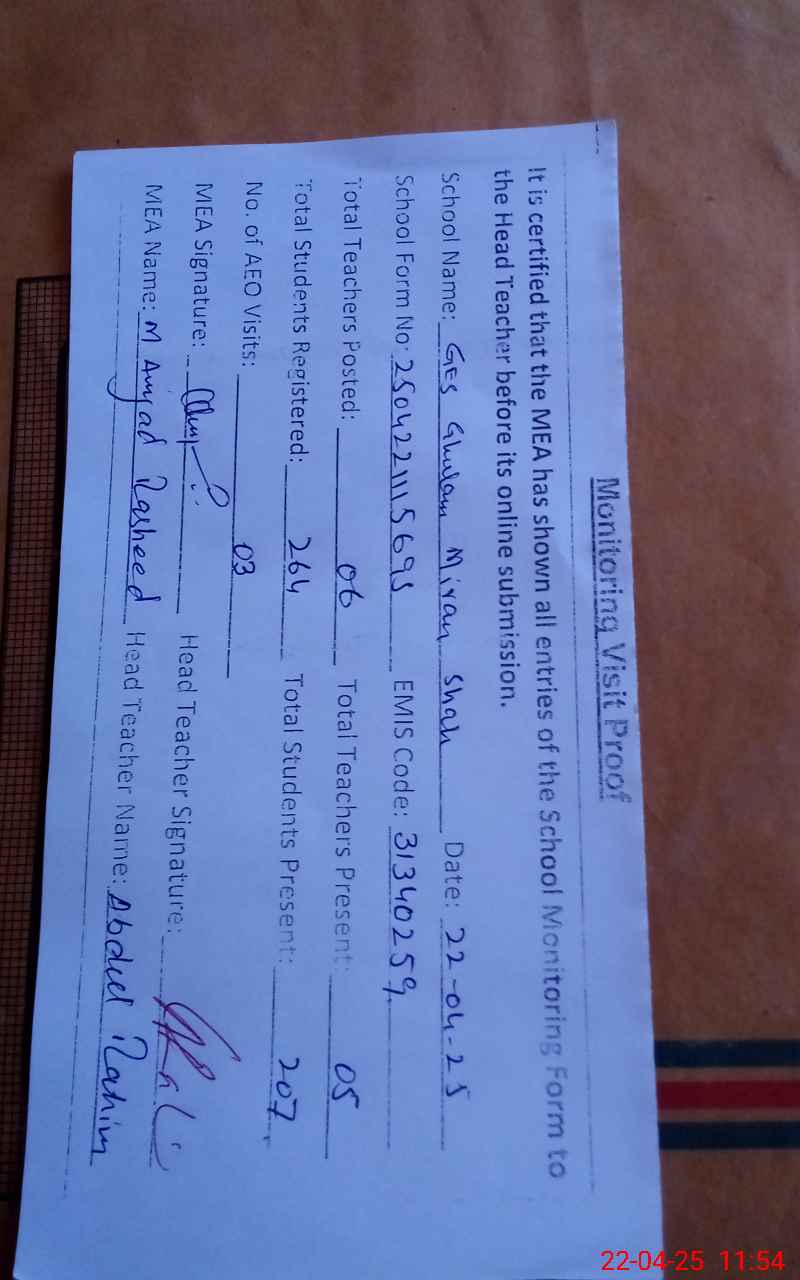 Monitoring Visit Proof
It is certified that the MEA has shown all entries of the School Monitoring Form to
the Head Teacher before its online submission.
School Name: GES Ghulam Miran Shah Date: 22-04-25
School Form No: 2504221115695 EMIS Code: 31340259
Total Teachers Posted: 06 Total Teachers Present: 05
Total Students Registered: 264 Total Students Present: 207
No. of AEO Visits: 03
MEA Signature: Head Teacher Signature:
MEA Name: M Amjad Rasheed Head Teacher Name: Abdul Rahim
22-04-25 11:54